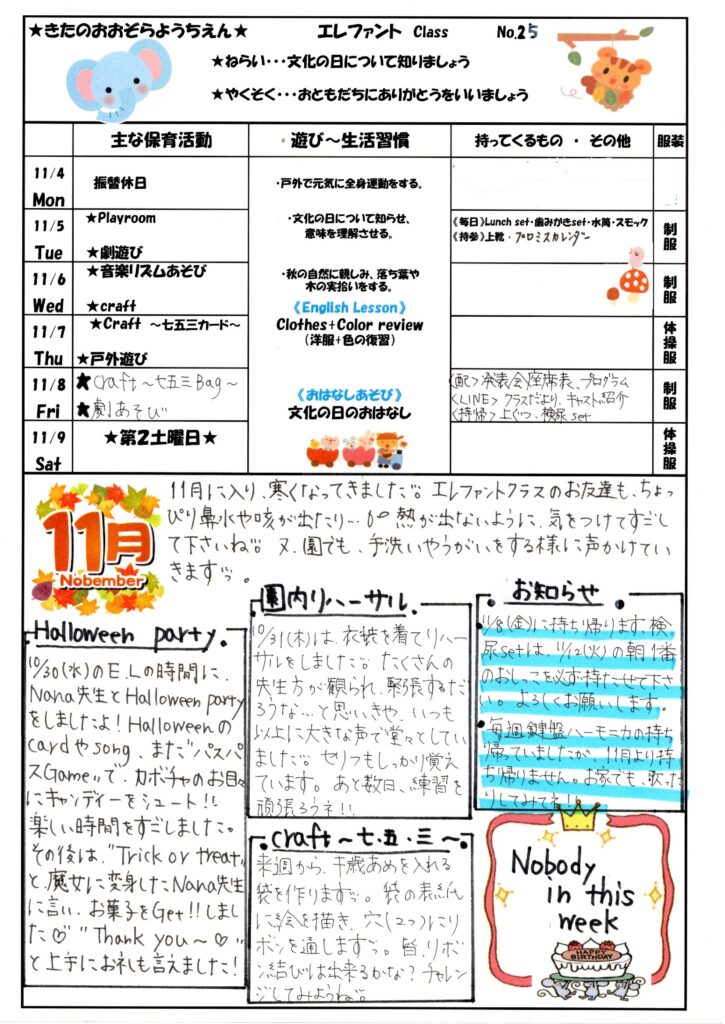 ★きたのおおぞらようちえん★ エレファント Class No.25
★ねらい・・・文化の日について知りましょう
★やくそく・・・おともだちにありがとうをいいましょう
主な保育活動 遊び～生活習慣 持ってくるもの ・ その他 服装
11/4 Mon
振替休日
・戸外で元気に全身運動をする。
11/5 Tue
★Playroom
★劇遊び
・文化の日について知らせ、
意味を理解させる。
《毎日》Lunch set・歯みがきset・水筒・スモック
《持参》上靴・プロミスカレンダー
制服
11/6 Wed
★音楽リズムあそび
★craft
・秋の自然に親しみ、落ち葉や
木の実拾いをする。
《English Lesson》
制服
11/7 Thu
★Craft ～七五三カード～
★戸外遊び
Clothes+Color review
（洋服+色の復習）
体操服
11/8 Fri
★Craft～七五三Bag～
★劇あそび
《おはなしあそび》
文化の日のおはなし
〈配〉発表会座席表、プログラム
〈LINE〉クラスだより、キャスト紹介
〈持帰〉上ぐつ、検尿set
制服
11/9 Sat
★第2土曜日★
体操服
11月
Nobember
11月に入り、寒くなってきました。エレファントクラスのお友達も、ちょっ
ぴり鼻水や咳が出たり… 熱が出ないように、気をつけてすごし
て下さいね。又、園でも、手洗いやうがいをする様に声かけてい
きますっ。
Halloween party
10/30(水)のE.Lの時間に、
Nana先生とHalloween party
をしましたよ！Halloweenの
cardやsong、また"パスパ
スGame"で、カボチャのお目々
にキャンディーをシュート!!
楽しい時間をすごしました。
その後は、"Trick or treat"
と、魔女に変身したNana先生
に言い、お菓子をGet!!しまし
た♡"Thank you～♡"
と上手にお礼も言えました！
園内リハーサル
10/31(木)は、衣装を着てリハー
サルをしました。たくさんの
先生方が観られ、緊張するだ
ろうな…と思いきや、いつも
以上に大きな声で堂々としてい
ました。セリフもしっかり覚え
ています。あと数日、練習を
頑張ろうネ!!
craft～七・五・三～
来週から、千歳あめを入れる
袋を作りますっ。袋の表紙
に絵を描き、穴(2つ)にリ
ボンを通しますっ。皆、リボ
ン結びは出来るかな？チャレン
ジしてみようね。
お知らせ
11/8(金)に持ち帰ります検
尿setは、11/12(火)の朝1番
のおしっこを必ず持たせて下さ
い。よろしくお願いします。
毎週鍵盤ハーモニカの持ち
帰っていましたが、11月より持
ち帰りません。お家でも、歌った
りしてみてネ!!
Nobody
in this
week
HAPPY
BIRTHDAY